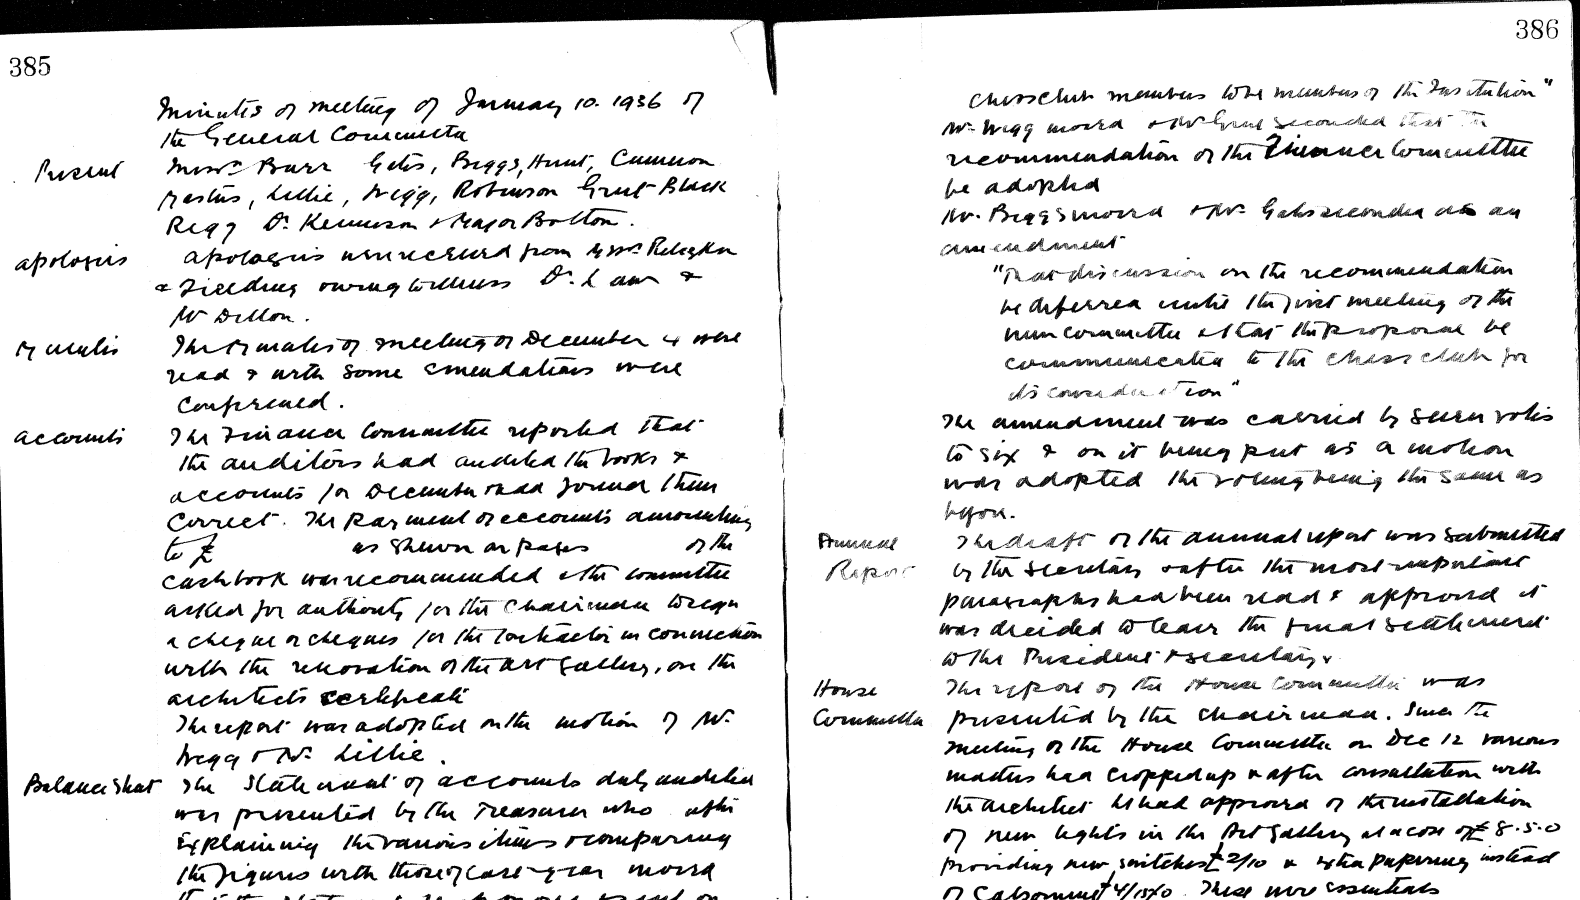 385
Minutes of meeting of January 10. 1936 of
the General Committee
Present
Messrs Barr Getes, Beggs, Hunt, Cameron
Lillie, Wegg, Robinson Grut Black
Regg Dr. Kennison & Major Bolton.
apologies
apologies were received from Messrs
& Fielding owing to illness Dr. Law &
Mr Dillon.
Minutes
The Minutes of meeting of December 4 were
read & with some emendations were
confirmed.
accounts
The Finance Committee reported that
the auditors had audited the books &
accounts for December & had found them
correct. The payment of accounts amounting
to £ as shown on pages of the
cashbook was recommended & the committee
asked for authority for the Chairman to sign
a cheque or cheques for the contractor in connection
with the renovation of the Art Gallery, on the
architects certificate
The report was adopted on the motion of Mr.
Wegg & Mr. Lillie.
Balance Sheet
The Statement of accounts duly audited
was presented by the Treasurer who after
Explaining the various items & comparing
the figures with those of last year moved
386
chess club members to be members of the Institution"
Mr Wegg moved & Mr Grut seconded that the
recommendation of the Finance Committee
be adopted
Mr. Beggs moved & Mr. Getes seconded as an
amendment
"That discussion on the recommendation
be deferred until the first meeting of the
new committee & that the proposal be
communicated to the chess club for
its consideration"
The amendment was carried by seven votes
to six & on it being put as a motion
was adopted the voting being the same as
before.
Annual
Report
The draft of the annual report was submitted
by the Secretary & after the most important
paragraphs had been read & approved it
was decided to leave the final settlement
to the President & Secretary.
House
Committee
The report of the House Committee was
presented by the chairman. Since the
meeting of the House Committee on Dec 12 various
matters had cropped up & after consultation with
the architect he had approved of the installation
of new lights in the Art Gallery at a cost of £8.5.0
providing new switches £2/10 & extra papering instead
of Calsomine £4/15/0. These were essentials